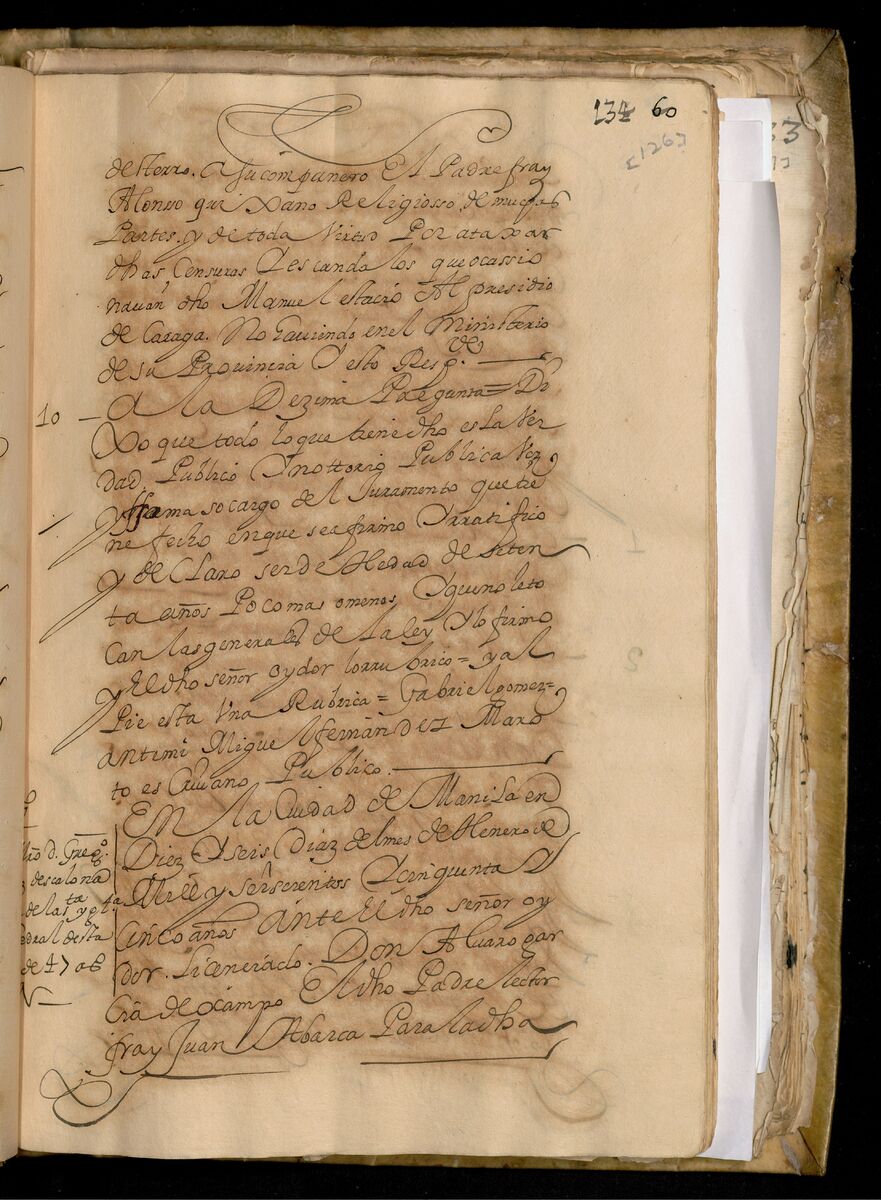 134 60
[126]
desterro. a su compañero El Padre fray
Alonso quixano Religiosso de muchas
Partes. y de toda Virtud Por ataxar
dhas Censuras Y escandalos que ocassio
navan dho Manuel estacio Al presidio
de Caraga. No haviendo en el Ministerio
de su Provincia Y esto Respde.
10 — A la Dezima Pregunta = Di
Xo que todo lo que tiene dho es la Ver
dad Publico Y nottorio Publica Voz
y fama so cargo del Juramento que tie
ne fecho en que se afirmo Y rratifico
y declaro ser de hedad de seten
ta años Poco mas o menos Y que no le to
can las generales de la ley Y lo firmo
y El dho señor oydor lo rrubrico = y al
Pie esta Una Rubrica = Gabriel gomez =
ante mi Miguel fernandez Maro
to escrivano Publico.
En la Ciudad de Manila en
Diez Y seis Diaz del mes de Henero de
Mill y seiscientos Y cinquenta Y
Cinco años ante El dho señor oy
dor. Licenciado. Don Alvaro gar
cia de ocampo El dho Padre lector
fray Juan Abarca Para la dha
D. Gregº.
descalona
de la sta ygla
desta
de 47 as